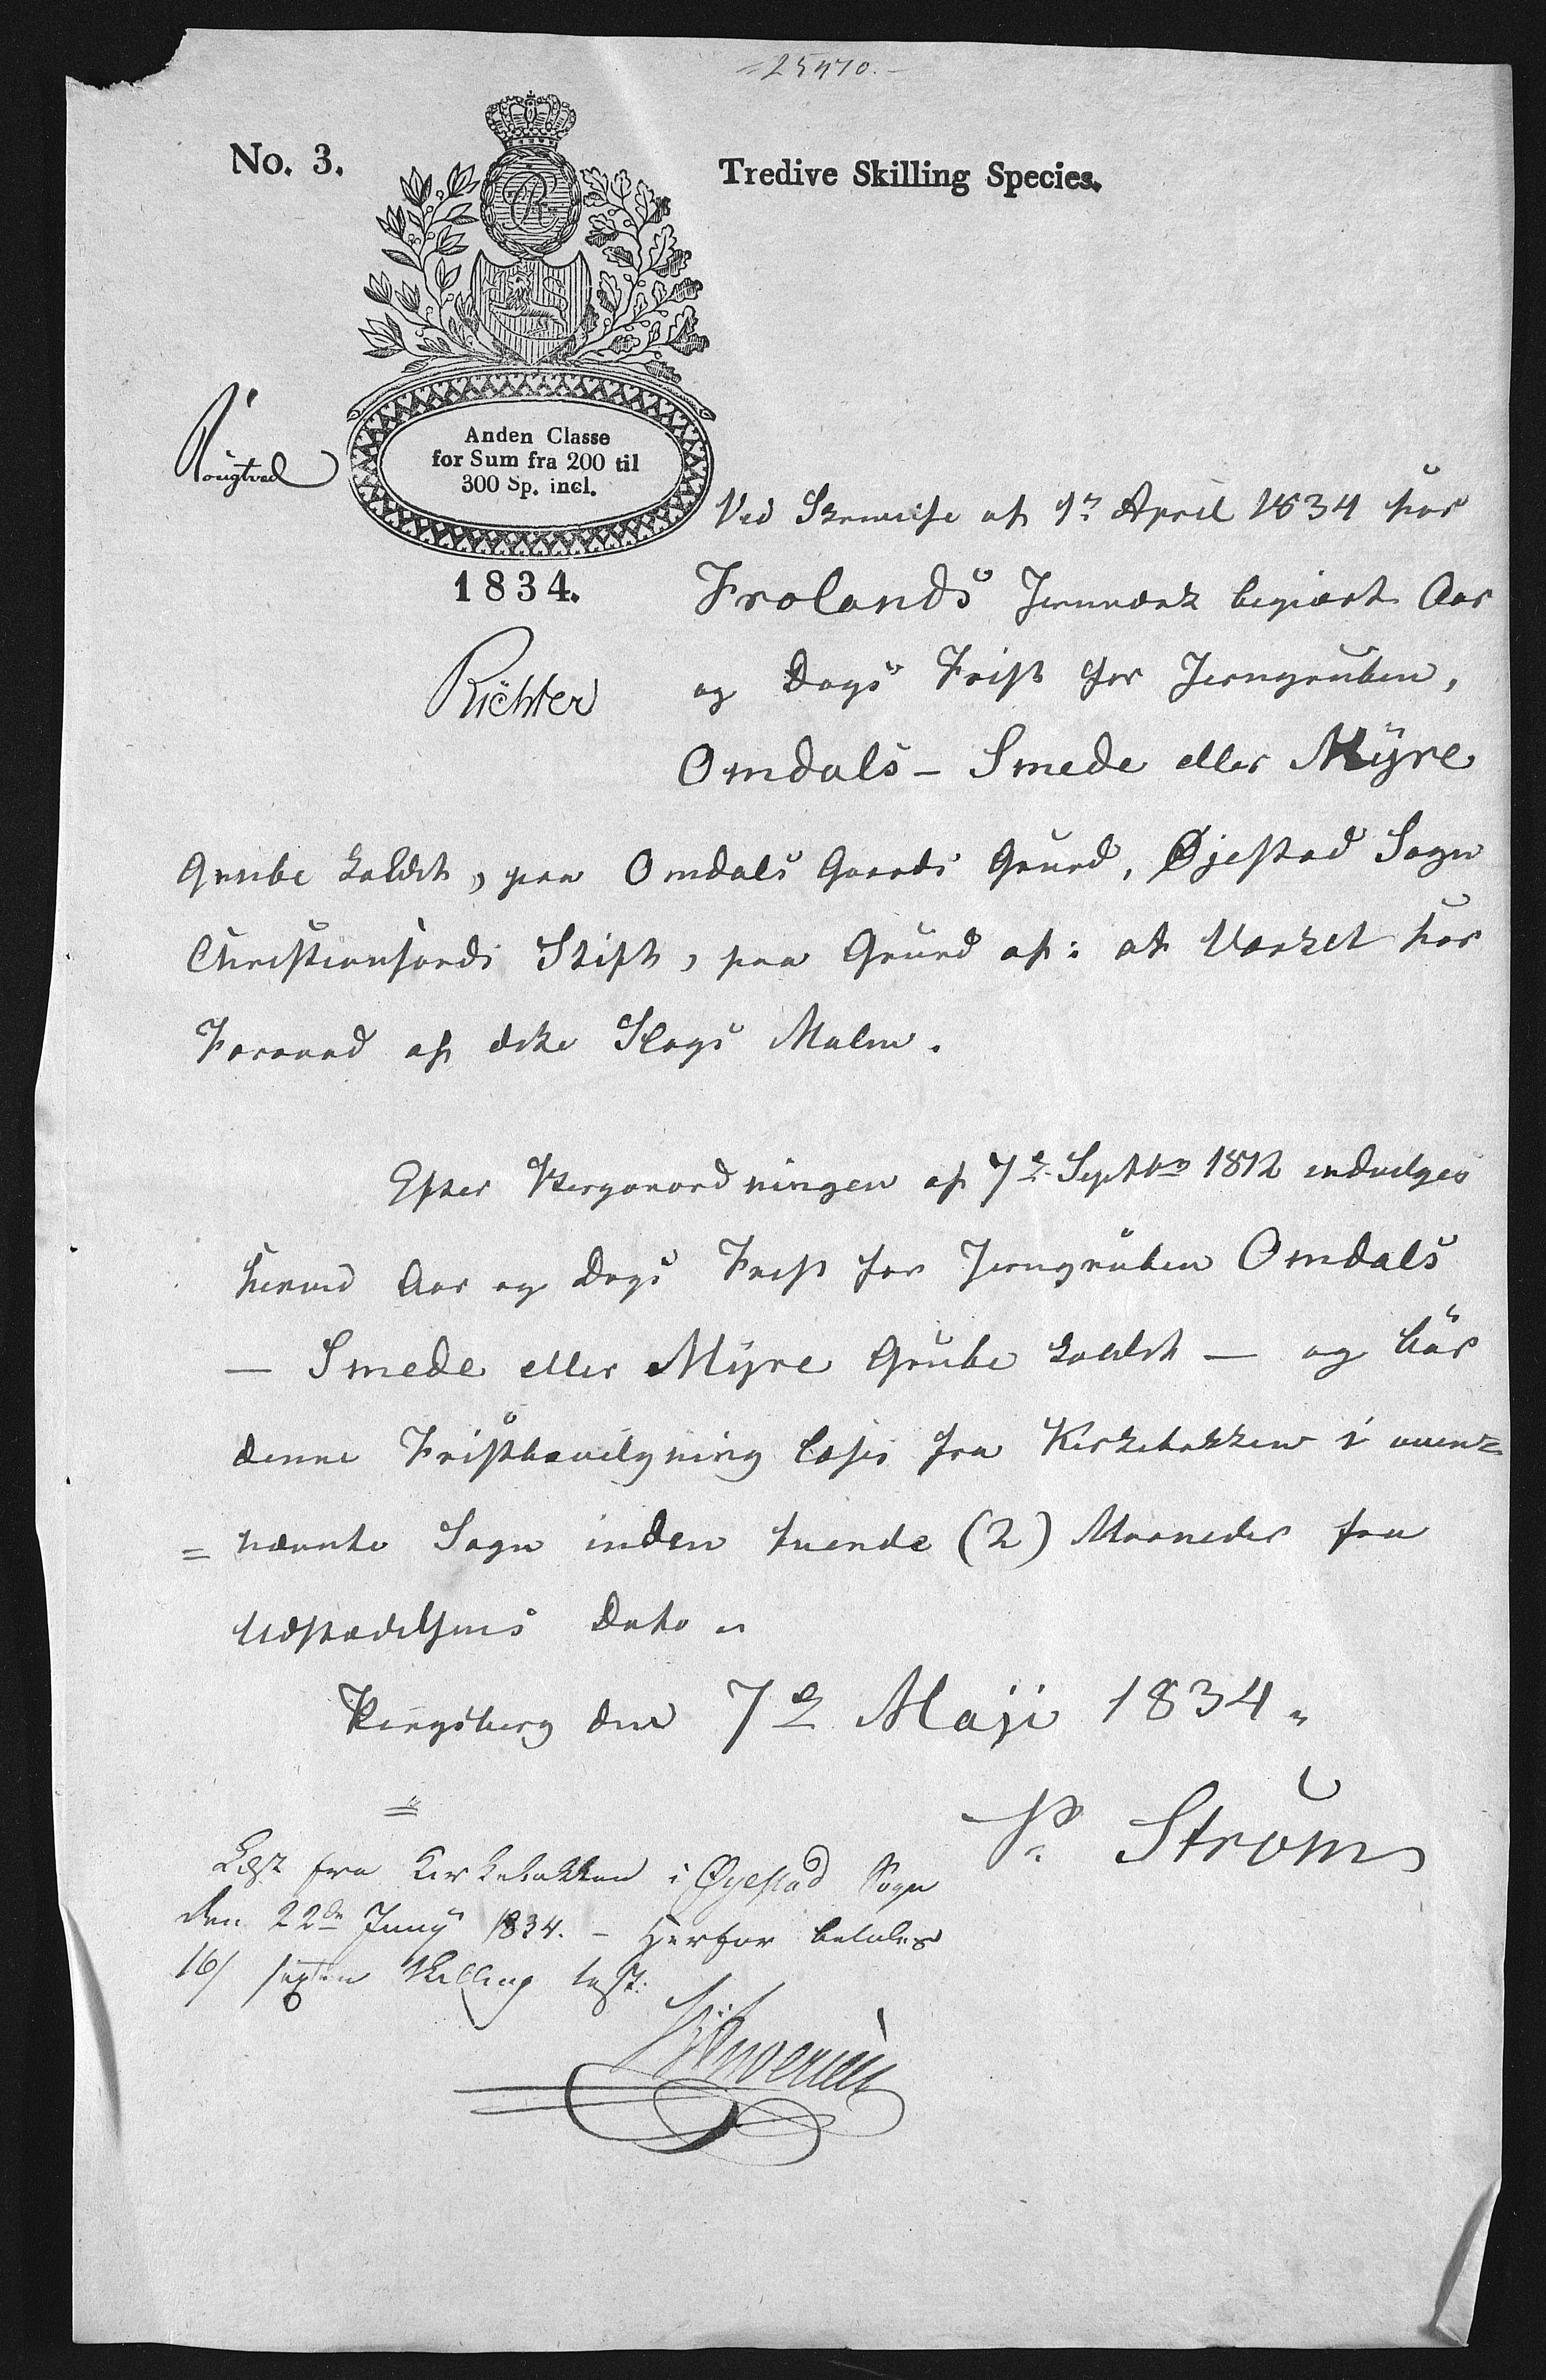 No. 3.
Tredive Skilling Species.
Anden Classe
for Sum fra 200 til
300 Sp. incl.
1834.
Richter
Ved Skrivelse af 9de April 1834 har
Frolands Jernværk begiært Aar
og Dags Frist for Jerngruben,
Omdals - Smede eller Myre
Grube kaldet, paa Omdals Gaards Grund, Øjestad Sogn
Christiansands Stift, paa Grund af: at Værket har
Forraad af dette Slags Malm.
Efter Berganordningen af 7de Septbr 1812 indvilges
herved Aar og Dags Frist for Jerngruben Omdals
- Smede eller Myre Grube kaldet - og bör
denne Fristbevilgning læses fra Kirkebakken i oven=
=nævnte Sogn inden tvende (2) Maaneder fra
Udstædelsens Dato.
Kongsberg den 7de Maji 1834.
P. Strøm
Læst fra Kirkebakken i Øyestad Sogn
den 22de Juny 1834. - Herfor betales
16/ sexten Skilling test: